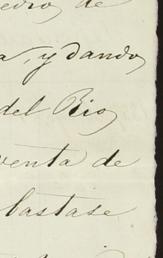 edro de
a, y dando
del Rio
venta de
bastase